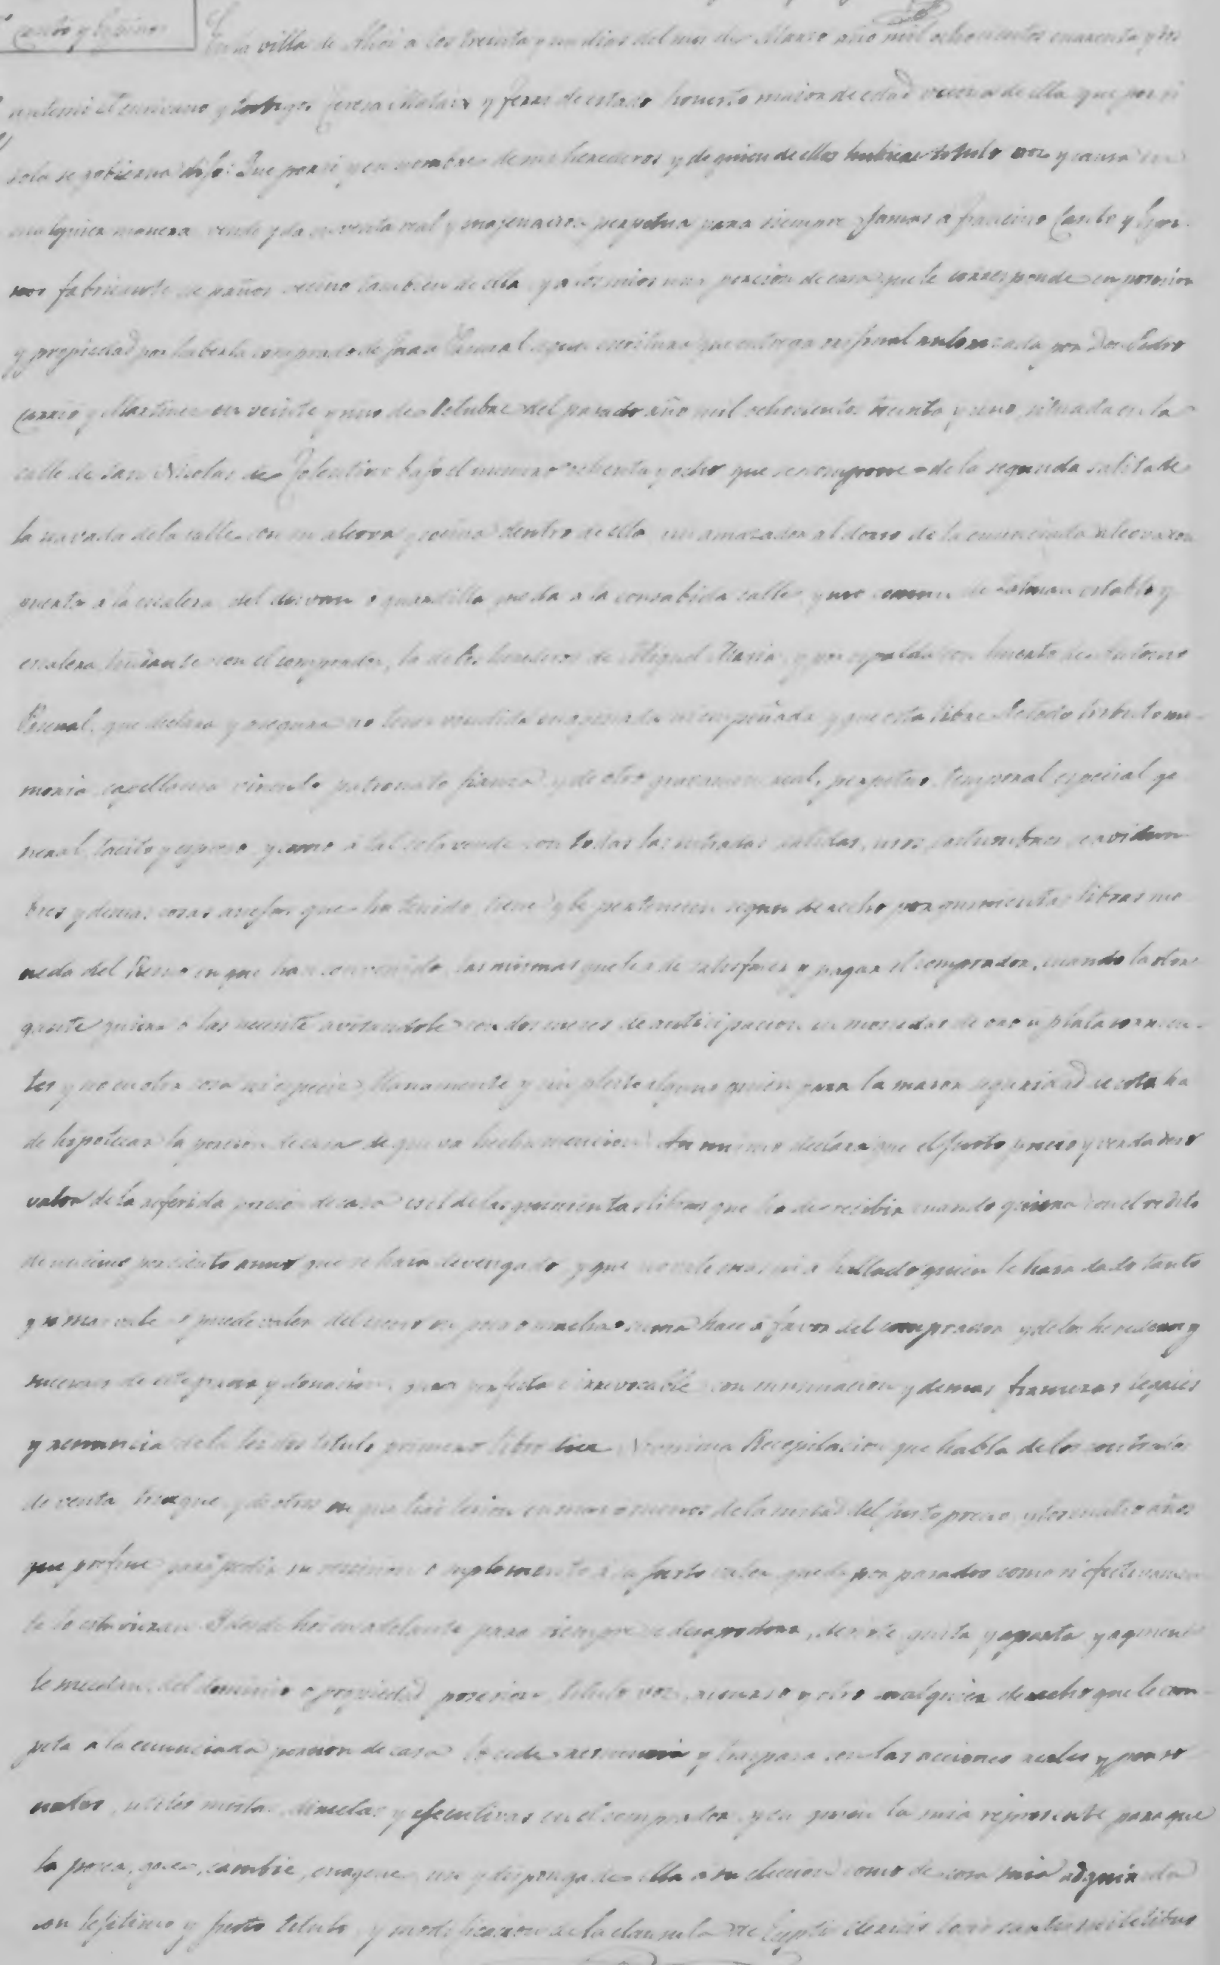 Cantó y Espinos
En la villa de Alcoi a los treinta y un dias del mes de Marzo año mil ochocientos cuarenta y dos
antemi el escribano y testigos Teresa Mataix y Ferre de estado honesto maior de edad vecina de ella que por si
sola se gobierna dijo: Que por si y en nombre de sus herederos y de quien de ellos hubiere titulo voz y causa en
cualquier manera vende y da en venta real y enagenacion perpetua para siempre jamas a Francisco Canto y Espi-
nos fabricante de paños vecino tambien de ella y a los suios una porcion de casa que le corresponde en posesion
y propiedad por haberla comprado de Juan Pascual segun escritura que entrega original autorizada por Don Pedro
Carrio y Martinez en veinte y uno de Octubre del pasado año mil ochocientos treinta y uno, situada en la
calle de San Nicolas de Tolentino bajo el numero ochenta y ocho que se compone de la segunda salita de
la navada de la calle con su alcova y cocina dentro de ella un amazador al dorso de la enunciada alcova con
puerta a la escalera, del desvan o guardilla que da a la consabida calle, y uso comun de establo y
escalera lindante con el comprador, la de los herederos de Miguel Maria y por espaldas con huerto de Antonio
Pascual, que declara y asegura no tener vendida enagenada ni empeñada y que esta libre de todo tributo me-
moria capellania vinculo patronato fianza y de otro gravamen real, perpetuo, temporal especial ge
neral tacito y espreso y como a tal se la vende con todas las entradas salidas, usos, costumbres, servidum
bres y demas cosas anejas que ha tenido, tiene y le pertenecen segun derecho por quinientas libras mo-
neda del Reino en que han convenido, las mismas que ha de satisfacer y pagar el comprador, cuando la otor-
gante quiera o las necesite avisandole con dos meses de anticipacion en monedas de oro u plata corrien-
tes y no en otra cosa ni especie llanamente y sin pleito alguno quien para la maior seguridad de esta ha
de hipotecar la porcion de casa de que va hecha mencion. Asi mismo declara que el justo precio y verdadero
valor de la referida porcion de casa es el de las quinientas libras que ha de recibir cuando quiera con el redito
de un cinco por ciento anuo que se haia devengado y que no vale mas ni a hallado quien le haia dado tanto
y si mas vale o puede valer del esceso en poca o mucha suma hace a favor del comprador y de los herederos y
sucesores de este gracia y donacion pura perfecta e irrevocable con insinuacion y demas firmezas legales
y renuncia de la lei dos titulo primero libro diez Novisima Recopilacion que habla de los contratos
de venta trueque y de otros en que hai lesion en mas o menos de la mitad del justo precio y los cuatro años
que prefine para pedir su rescision o suplemento a su justo valor que da por pasados como si efectivamen
te lo estuvieran. Y desde hoi en adelante para siempre se desapodera, desiste, quita y aparta y a quien
le sucedan, del dominio o propiedad posesion, titulo voz, recurso y otro cualquier derecho que le com-
peta a la enunciada porcion de casa lo cede renuncia y traspasa con las acciones reales y perso
nales, utiles mistas, directas y ejecutivas en el comprador y en quien la suia represente para que
la posea, goce, cambie, enagene, use y disponga de ella a su eleccion como de cosa suia adquirida
con lejitimo y justo titulo, y modificacion de la clausula